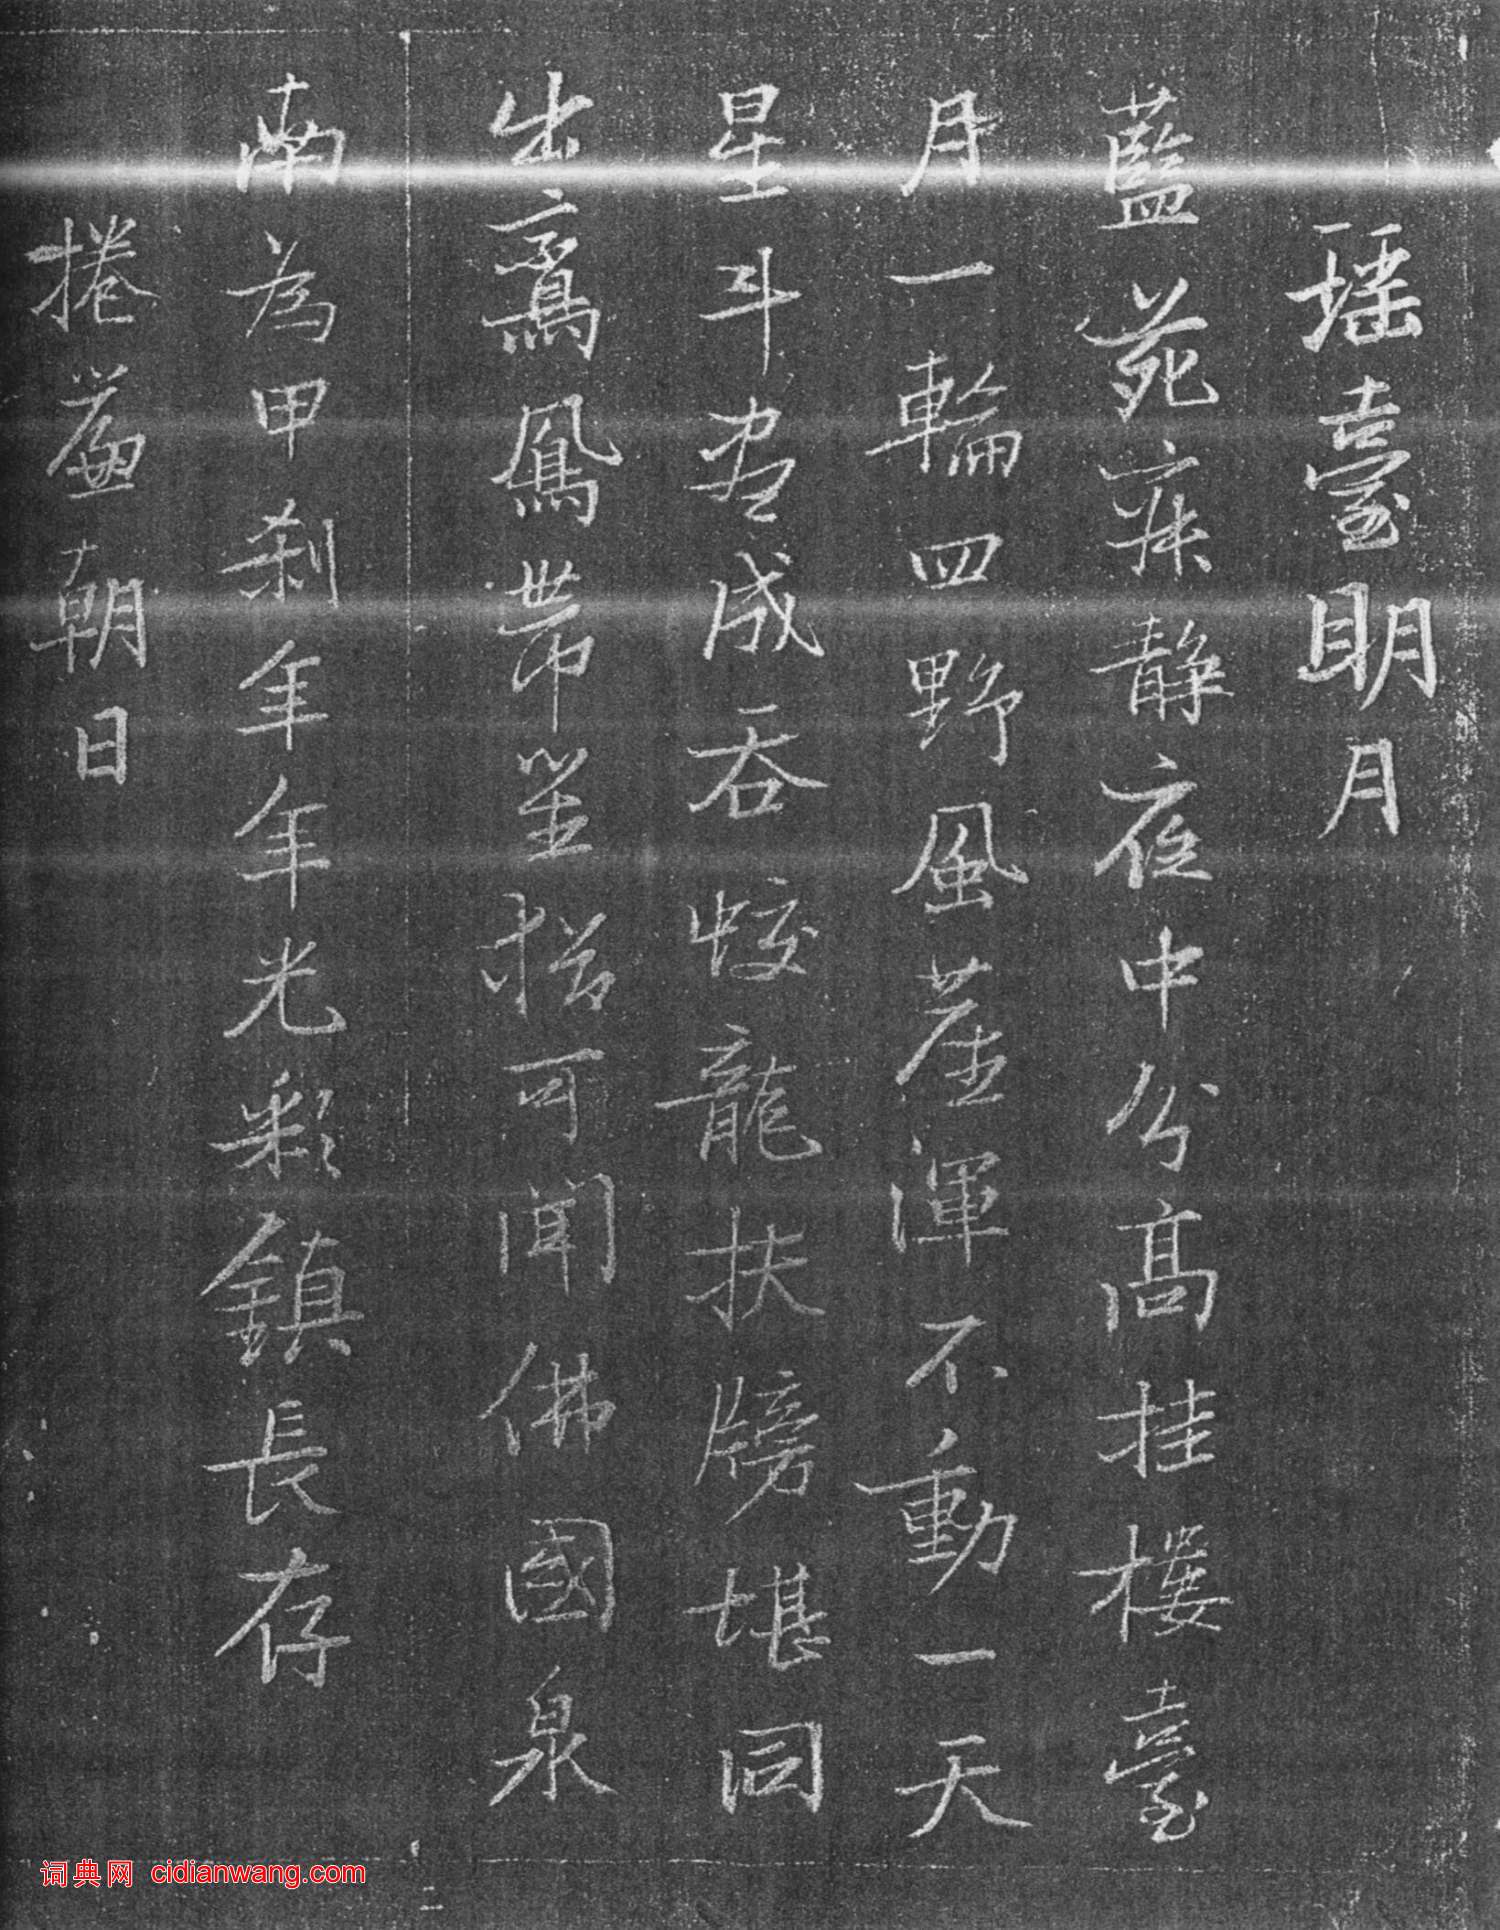 瑶臺明月
藍菀寂靜夜中分高挂樓臺
月一輪四野風塵渾不動一天
星斗盡成吞蛟龍扶牓堪同
出鸞鳳帶坐招可聞佛國泉
南為甲刹年年光彩鎮長存
捲簾朝日
词典网 cidianwang.com